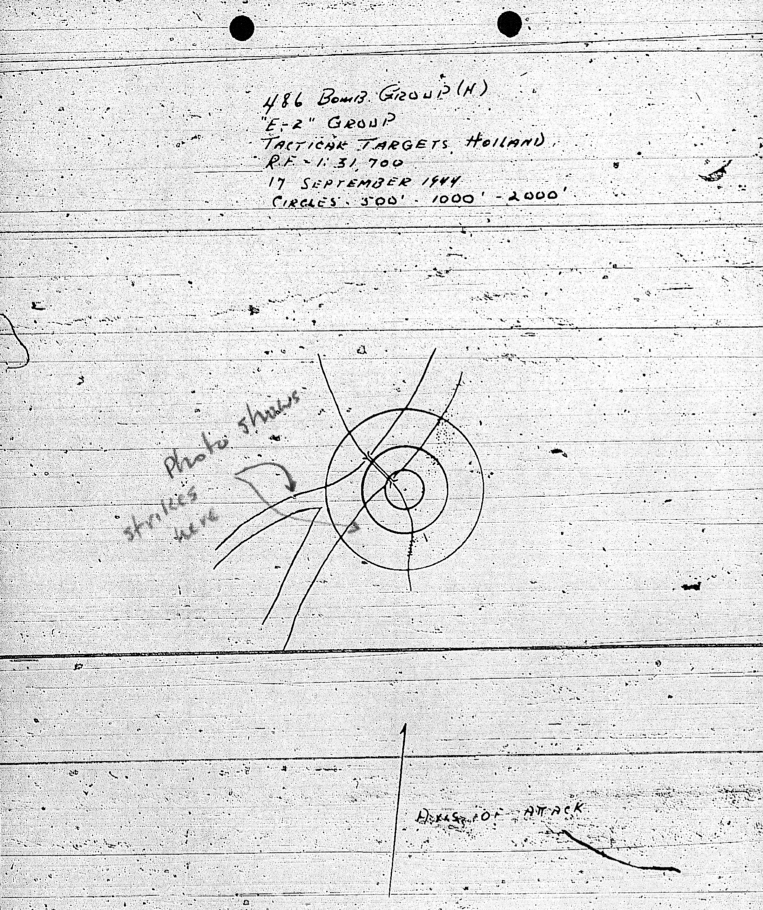 486 BOMB. GROUP (H)
"E-2" GROUP
TACTICAL TARGETS, HOLLAND.
R.F - 1:31,700
17 SEPTEMBER 1944
CIRCLES - 500' - 1000' - 2000'
Photo shows
strikes
here
AXIS OF ATTACK